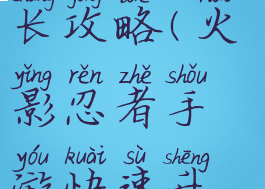 长攻略(火
yǐng rěn zhě shǒu
影忍者手
yóu kuài sù shēng
游快速升